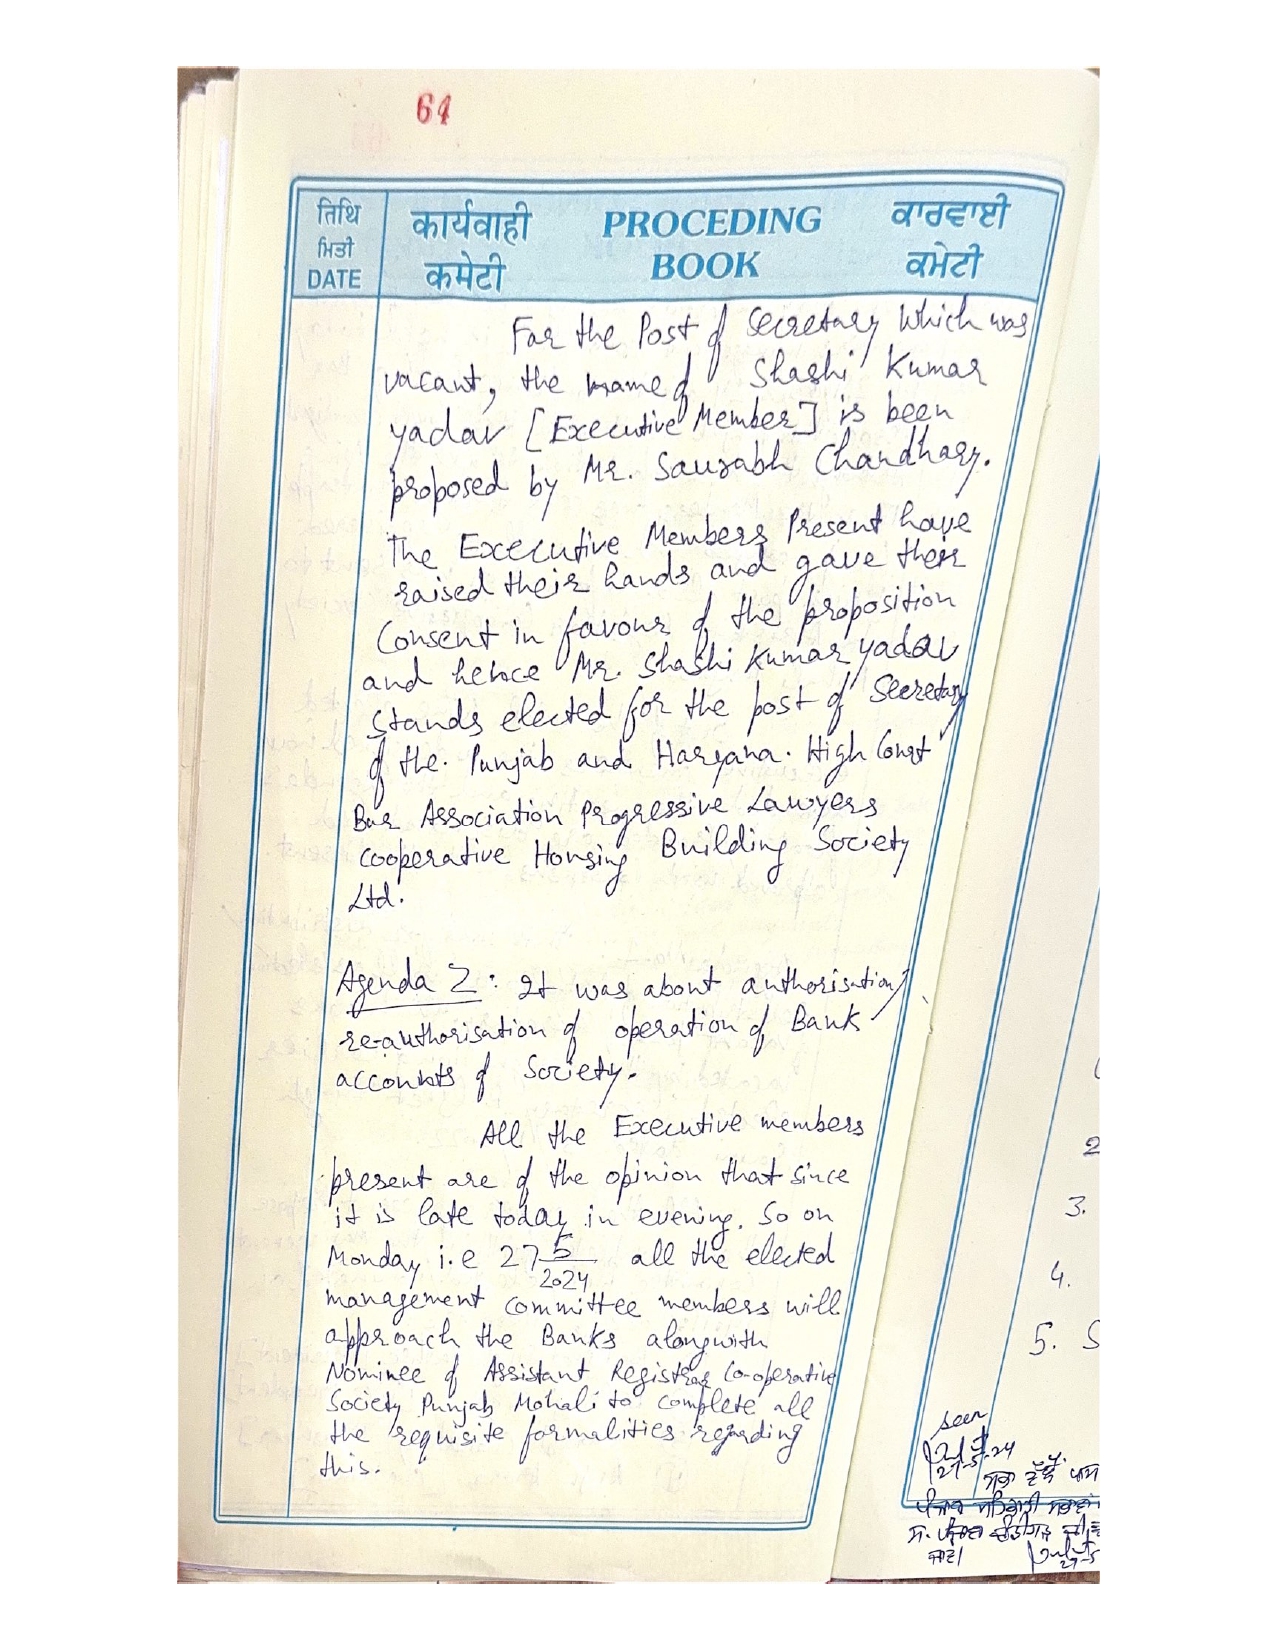 64
तिथि
ਮਿਤੀ
DATE
कार्यवाही
कमेटी
PROCEDING
BOOK
ਕਾਰਵਾਈ
ਕਮੇਟੀ
For the Post of Secretary Which was
vacant, the name of Shashi Kumar
yadav [Executive Member] is been
proposed by Mr. Saurabh Chandhary.
The Executive Members Present have
raised their hands and gave their
Consent in favour of the proposition
and hence Mr. Shashi Kumar yadav
stands elected for the post of Secretary
of the. Punjab and Haryana. High Court
Bar Association Progressive Lawyers
cooperative Housing Building Society
Ltd.
Agenda 2: It was about authorisation/
re-authorisation of operation of Bank
accounts of Society.
All the Executive members
present are of the opinion that since
it is late today in evening. So on
Monday i.e 27 5/2024 all the elected
management committee members will
approach the Banks alongwith
Nominee of Assistant Registrar Co-operative
Society Punjab Mohali to complete all
the requisite formalities regarding
this.
2
3.
4.
5. S
seen
27-5-24
27-5